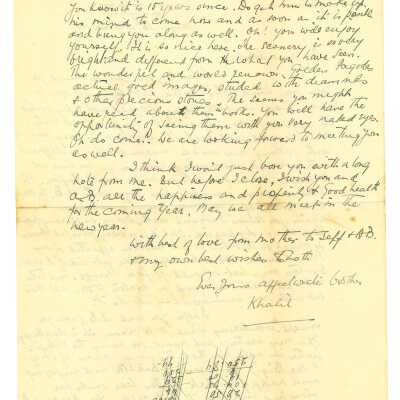 You know it is 15 years since. Do ask him to make up
his mind to come now and as soon as it is possible
and bring you along as well. Oh! you will enjoy
yourself. It is so nice here. The scenery is so very
bright and different from the what you have seen.
The wonderful and world renown Golden Pagoda
actual gold images, studed with diamonds
& other precious stones. The scenes you might
have read about them in books. You will have the
opportunity of seeing them with your very naked eyes.
Oh do come. We are looking forward to meeting you
as well.
I think I would just bore you with a long
note from me. But before I close, I wish you and
A.B. all the happiness and prosperity & good health
for the coming year. May we all meet in the
new year.
With best of love from mother to Jeff & A.B.
& my own best wishes to both
Ever yours affectionate brother
Khalil